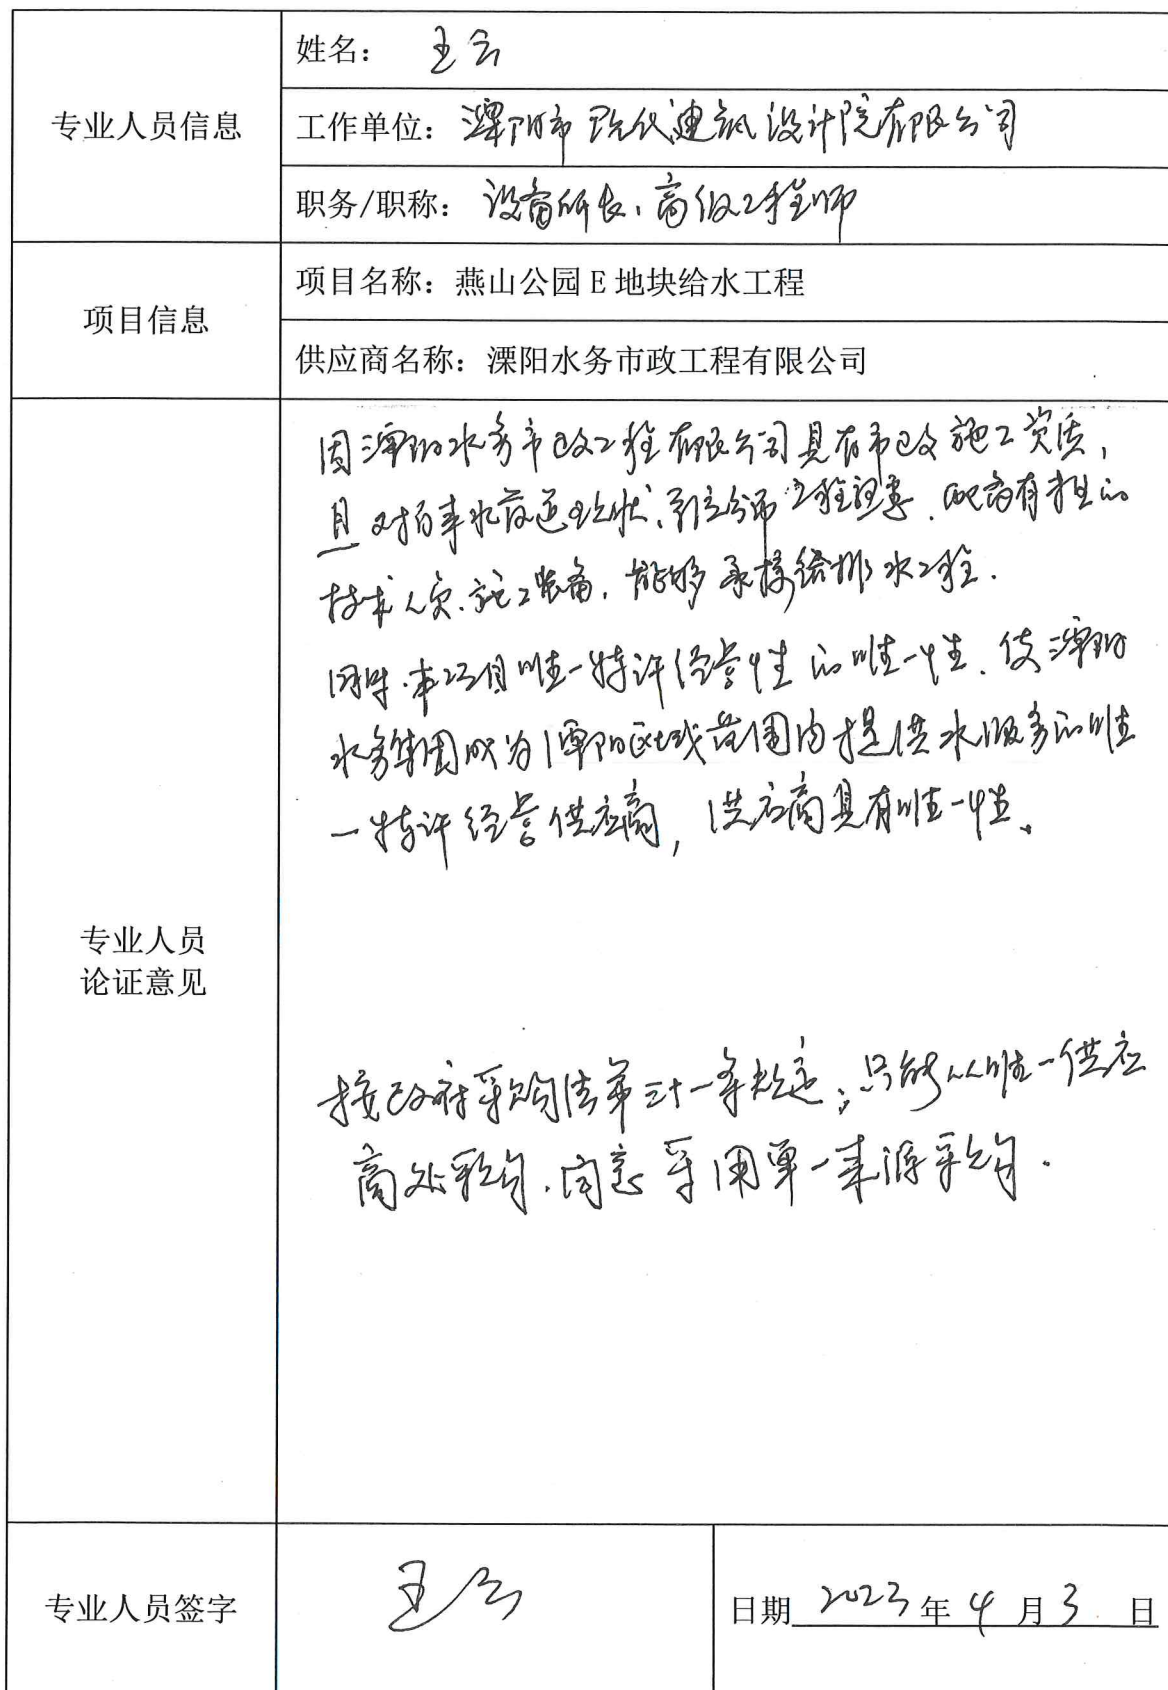 专业人员信息
姓名：王云
工作单位：溧阳市现代建筑设计院有限公司
职务/职称：设备所长、高级工程师
项目信息
项目名称：燕山公园E地块给水工程
供应商名称：溧阳水务市政工程有限公司
专业人员
论证意见
因溧阳水务市政工程有限公司具有市政施工资质，
且对自来水管道现状、分布工程，配备有相应
技术人员、施工装备，能够承接给排水工程．
同时，本项目唯一特许经营性的唯一性，使溧阳
水务集团成为溧阳区域范围内提供水服务的唯
一特许经营供应商，供应商具有唯一性。
按政府采购法第三十一条规定；只能从唯一供应
商处采购，同意采用单一来源采购．
专业人员签字
王云
日期 2023 年 4 月 3 日